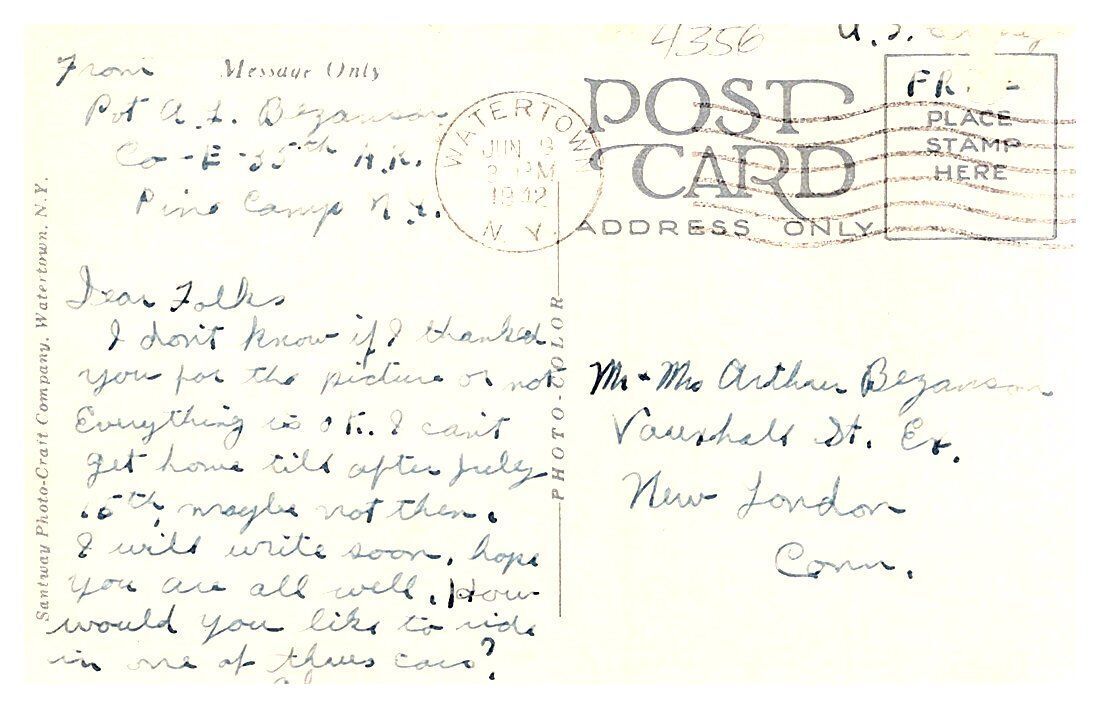 4356
U.S. Army
From
Message Only
Pvt A.L. Bezanson
Co-E-35th A.R.
Pine Camp N.Y.
WATERTOWN
JUN 8
PM
1942
N.Y.
POST
CARD
ADDRESS ONLY
FREE
PLACE
STAMP
HERE
Dear Folks
I don't know if I thanked
you for the picture or not
Everything is OK. I can't
get home till after July
15th, maybe not then.
I will write soon, hope
you are all well. How
would you like to ride
in one of thees cars?
Mr + Mrs Arthur Bezanson
Vauxhall St. Ex.
New London
Conn.
PHOTO-COLOR
Santway Photo-Craft Company, Watertown, N.Y.